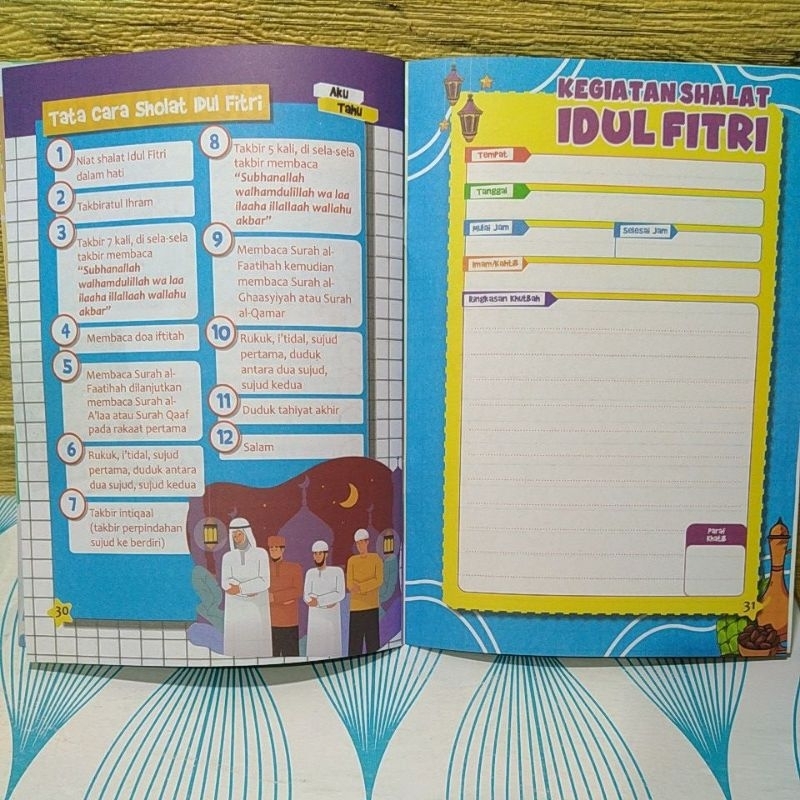 Tata cara Sholat Idul Fitri
Aku
Tahu
1
Niat shalat Idul Fitri
dalam hati
2
Takbiratul Ihram
3
Takbir 7 kali, di sela-sela
takbir membaca
"Subhanallah
walhamdulillah wa laa
ilaaha illallaah wallahu
akbar"
4
Membaca doa iftitah
5
Membaca Surah al-
Faatihah dilanjutkan
membaca Surah al-
A'laa atau Surah Qaaf
pada rakaat pertama
6
Rukuk, i'tidal, sujud
pertama, duduk antara
dua sujud, sujud kedua
7
Takbir intiqaal
(takbir perpindahan
sujud ke berdiri)
8
Takbir 5 kali, di sela-sela
takbir membaca
"Subhanallah
walhamdulillah wa laa
ilaaha illallaah wallahu
akbar"
9
Membaca Surah al-
Faatihah kemudian
membaca Surah al-
Ghaasyiyah atau Surah
al-Qamar
10
Rukuk, i'tidal, sujud
pertama, duduk
antara dua sujud,
sujud kedua
11
Duduk tahiyat akhir
12
Salam
30
KEGIATAN SHALAT
IDUL FITRI
Tempat
Tanggal
Mulai Jam
Selesai Jam
Imam/Kahtib
Ringkasan Khutbah
Paraf
Khatib
31